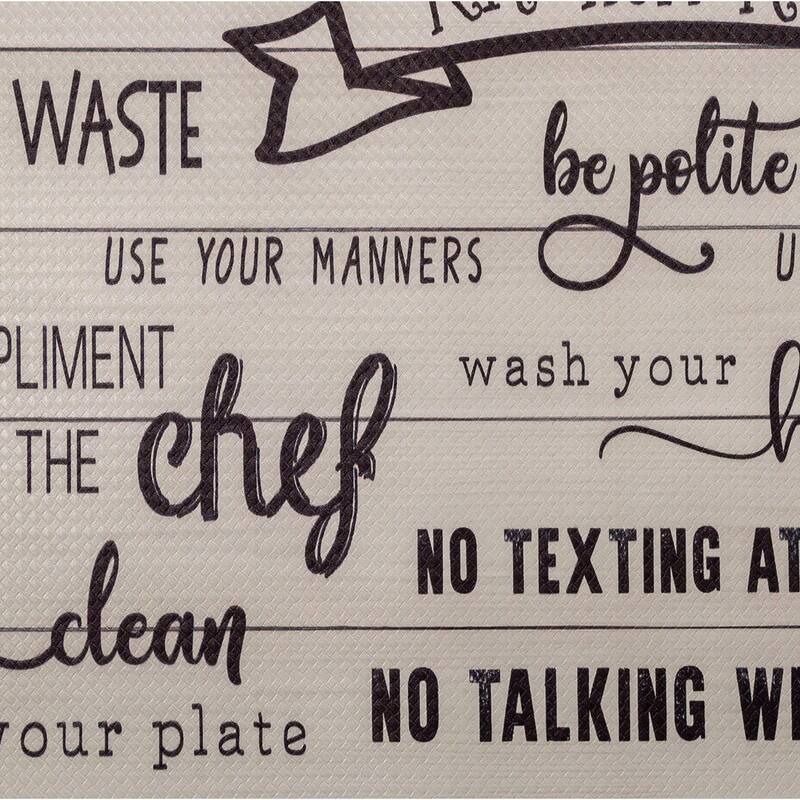 WASTE
be polite
USE YOUR MANNERS
PLIMENT
THE chef
wash your
NO TEXTING AT
clean
your plate
NO TALKING